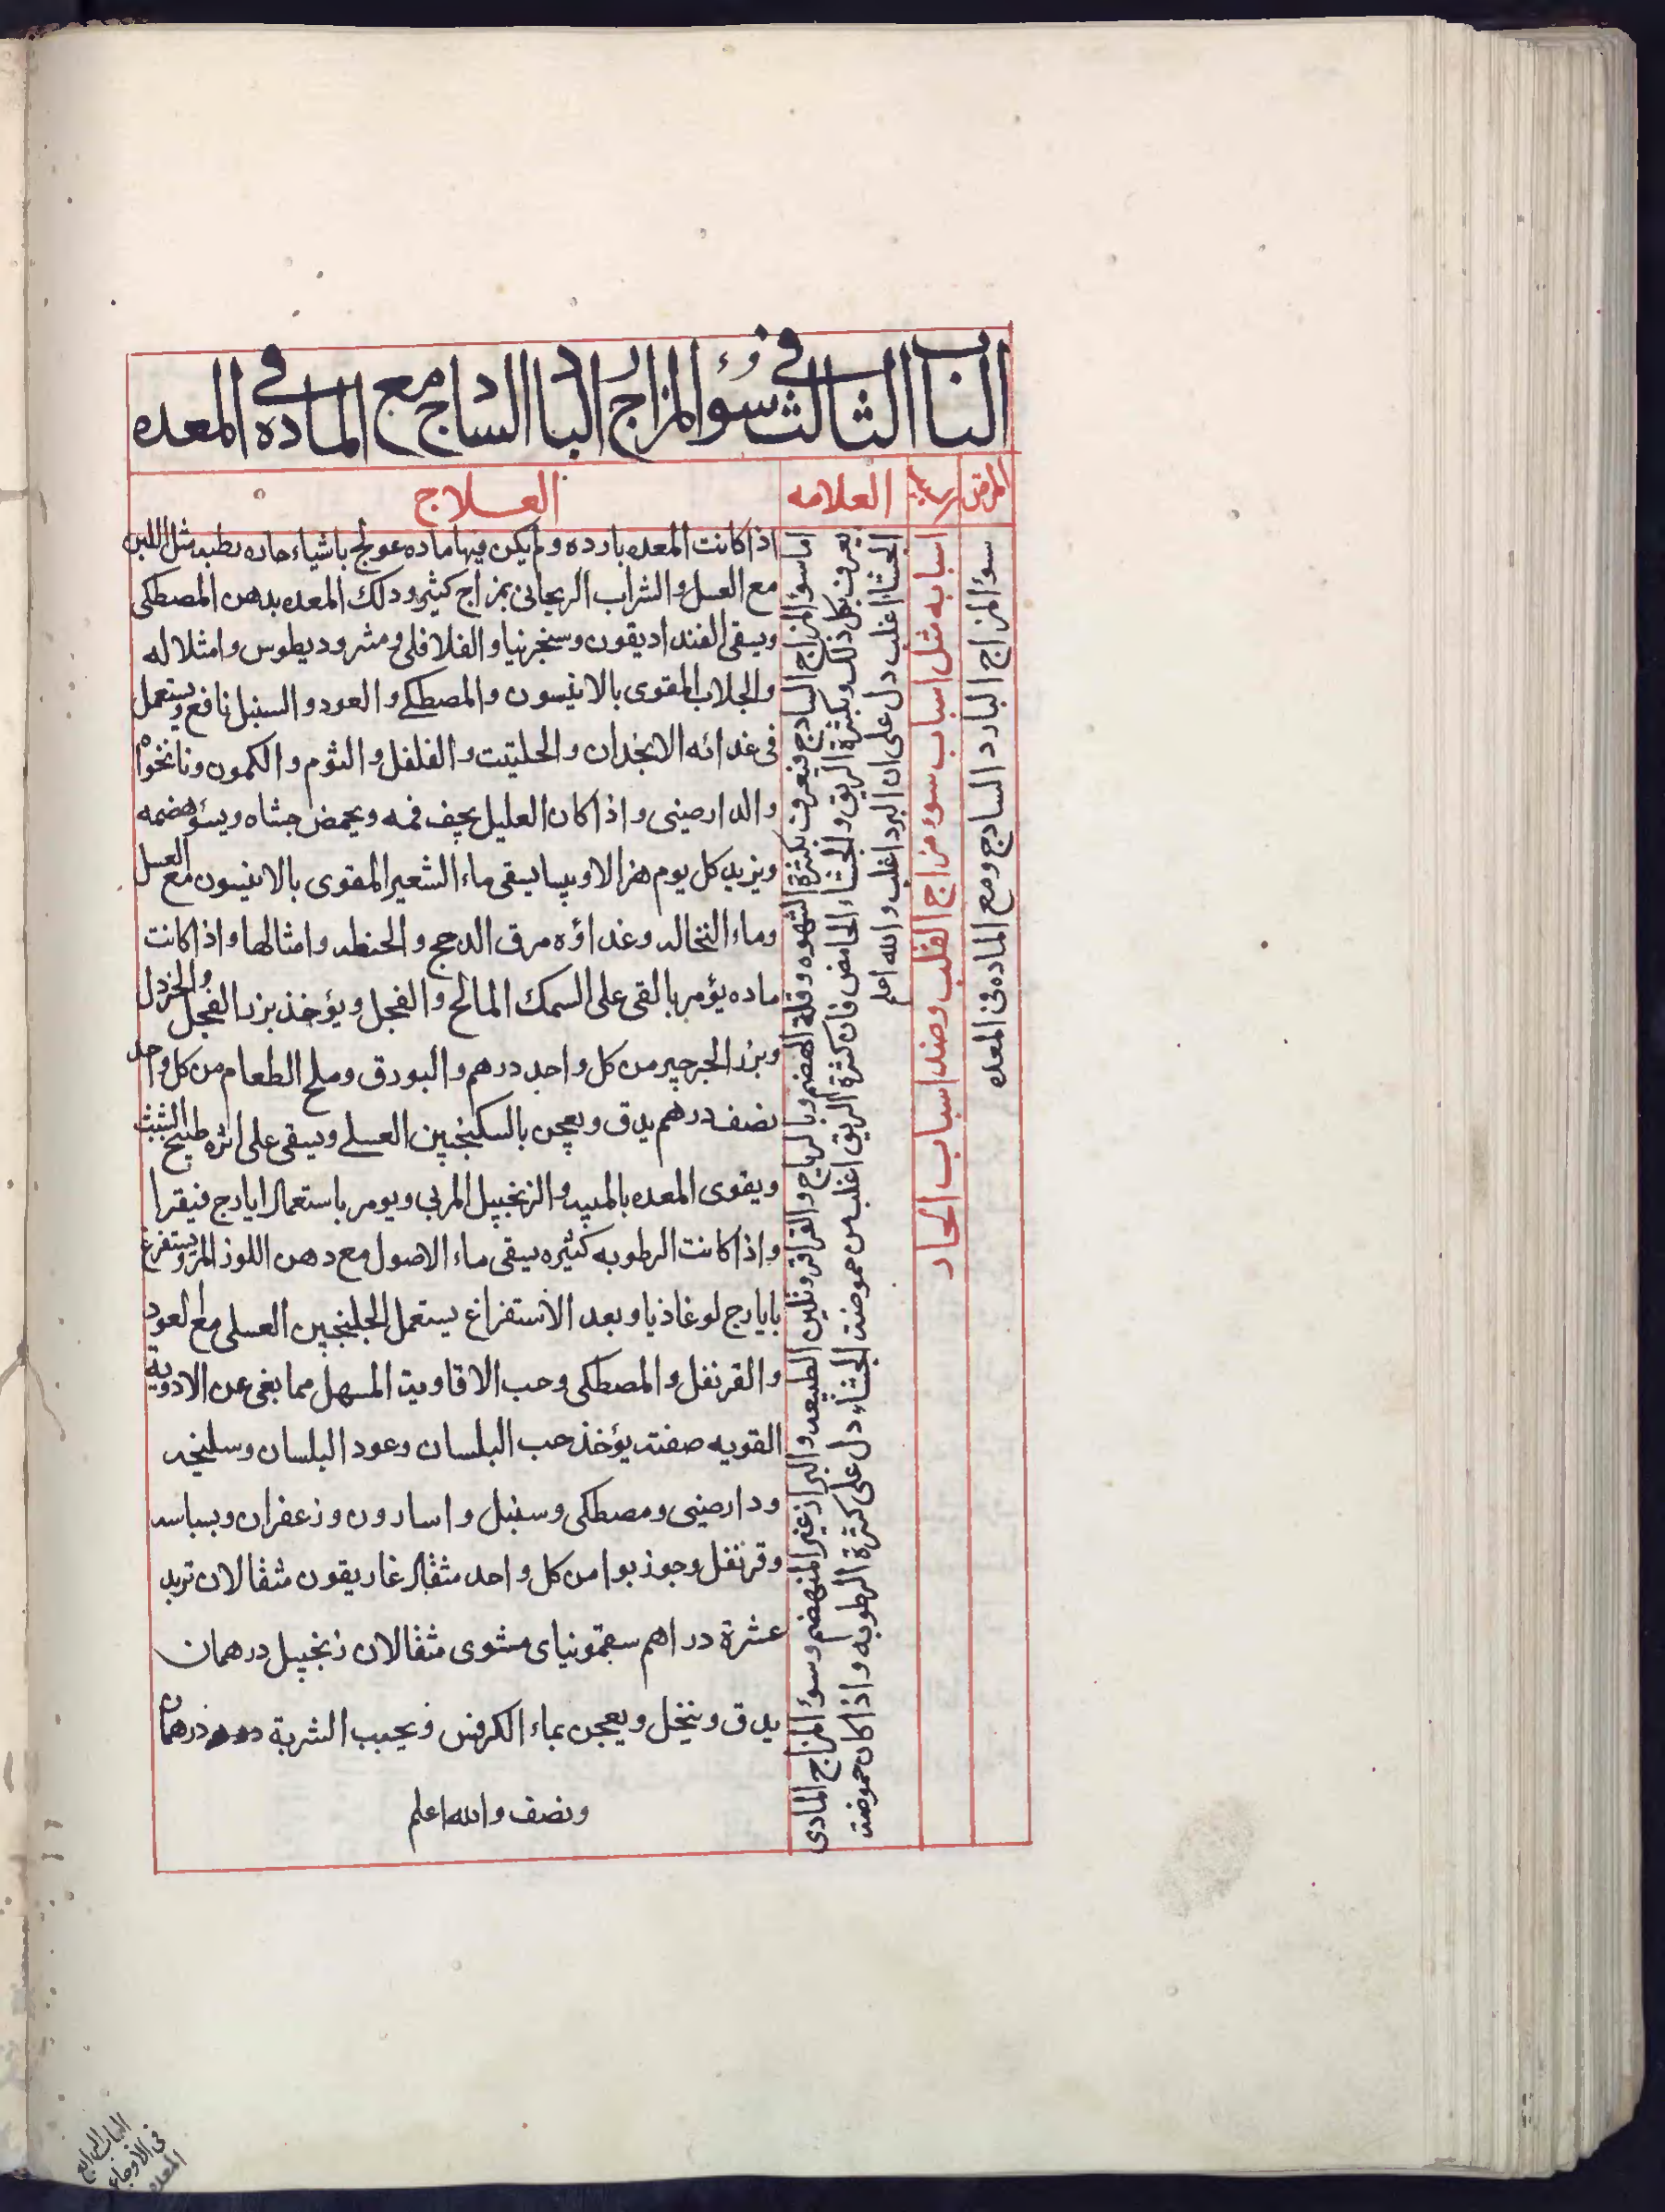 الباب الثالث في سوء المزاج البارد السادج مع الماده في المعده
المرض
العلامه
العلاج
سوء المزاج البارد السادج ومع الماده فى المعده
اسبابه مثل اسباب سوء مزاج القلب وضد اسباب الحار
اما سوء المزاج السادج فيعرف بكثرة الشهوه وقلة الهضم وبالرياح والقراقر وتليين الطبيعه والبراز غير المنهضم وسوء المزاج المادى
يعرف بكل ذلك وبكثرة الريق والجشاء الحامض فان كثرة الريق اغلب من حموضة الجشاء دل على كثرة الرطوبه واذا كان حموضة
الجشاء اغلب دل على ان البرد اغلب والله اعلم
اذا كانت المعده بارده ولم يكن فيها ماده عولج باشياء حاده رطبه مثل اللبن
مع العسل والشراب الريحانى بمزاج كثير ودلك المعده بدهن المصطكى
ويسقى الفنداديقون وسنجرنيا والفلافلى ومثروديطوس وامثلا له
والجلاب المقوى بالانيسون والمصطكى والعود والسنبل نافع ويستعمل
فى غدائه الانجدان والحلتيت والفلفل والثوم والكمون ونانخواه
والدارصينى واذا كان العليل يجف فمه ويحمض جشاه ويسوء هضمه
ويزيد كل يوم هزالا ويبسا يسقى ماء الشعير المقوى بالانيسون مع العسل
وماء النخاله وغداؤه مرق الدجج والحنطه وامثالها واذا كانت
ماده يؤمر بالقى على السمك المالح والفجل ويؤخذ بزر الفجل والخردل
وبزر الجرجير من كل واحد درهم والبورق وملح الطعام من كل واحد
نصف درهم يدق ويعجن بالسكنجبين العسلى ويسقى على اثره طبيخ الشبث
ويقوى المعده بالميبه والزنجبيل المربى ويومر باستعمال ايارج فيقرا
واذا كانت الرطوبه كثيره يسقى ماء الاصول مع دهن اللوز المر ويستفرغ
بايارج لوغاذيا وبعد الاستفراغ يستعمل الجلنجبين العسلى مع العود
والقرنفل والمصطكى وحب الافاويه المسهل مما يغى عن الادوية
القويه صفته يؤخذ حب البلسان وعود البلسان وسليخه
ودارصينى ومصطكى وسنبل واسارون وزعفران وبسباسه
وقرنفل وجوزبوا من كل واحد مثقال غاريقون مثقالان تربد
عشرة دراهم سقمونياى مشوى مثقالان زنجبيل درهمان
يدق وينخل ويعجن بماء الكرفس ويحبب الشربة درهمان
ونصف والله اعلم
الباب الرابع
فى الاوجاع
المعده